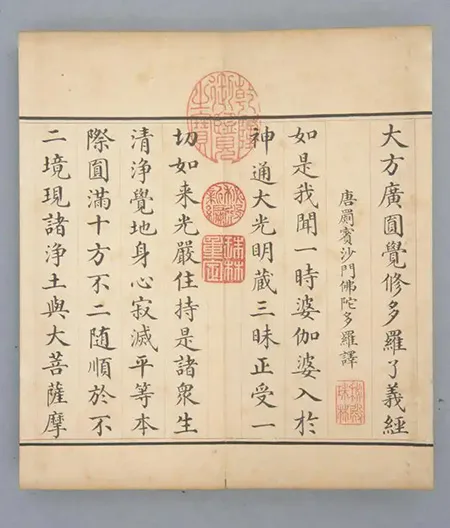 大方廣圓覺修多羅了義經
唐罽賓沙門佛陀多羅譯
秘殿珠林
如是我聞一時婆伽婆入於
神通大光明蔵三昧正受一
乾隆御覽之寶
秘殿新編
珠林重定
切如来光嚴住持是諸衆生
清淨覺地身心寂滅平等本
際圓滿十方不二随順於不
二境現諸淨土與大菩薩摩